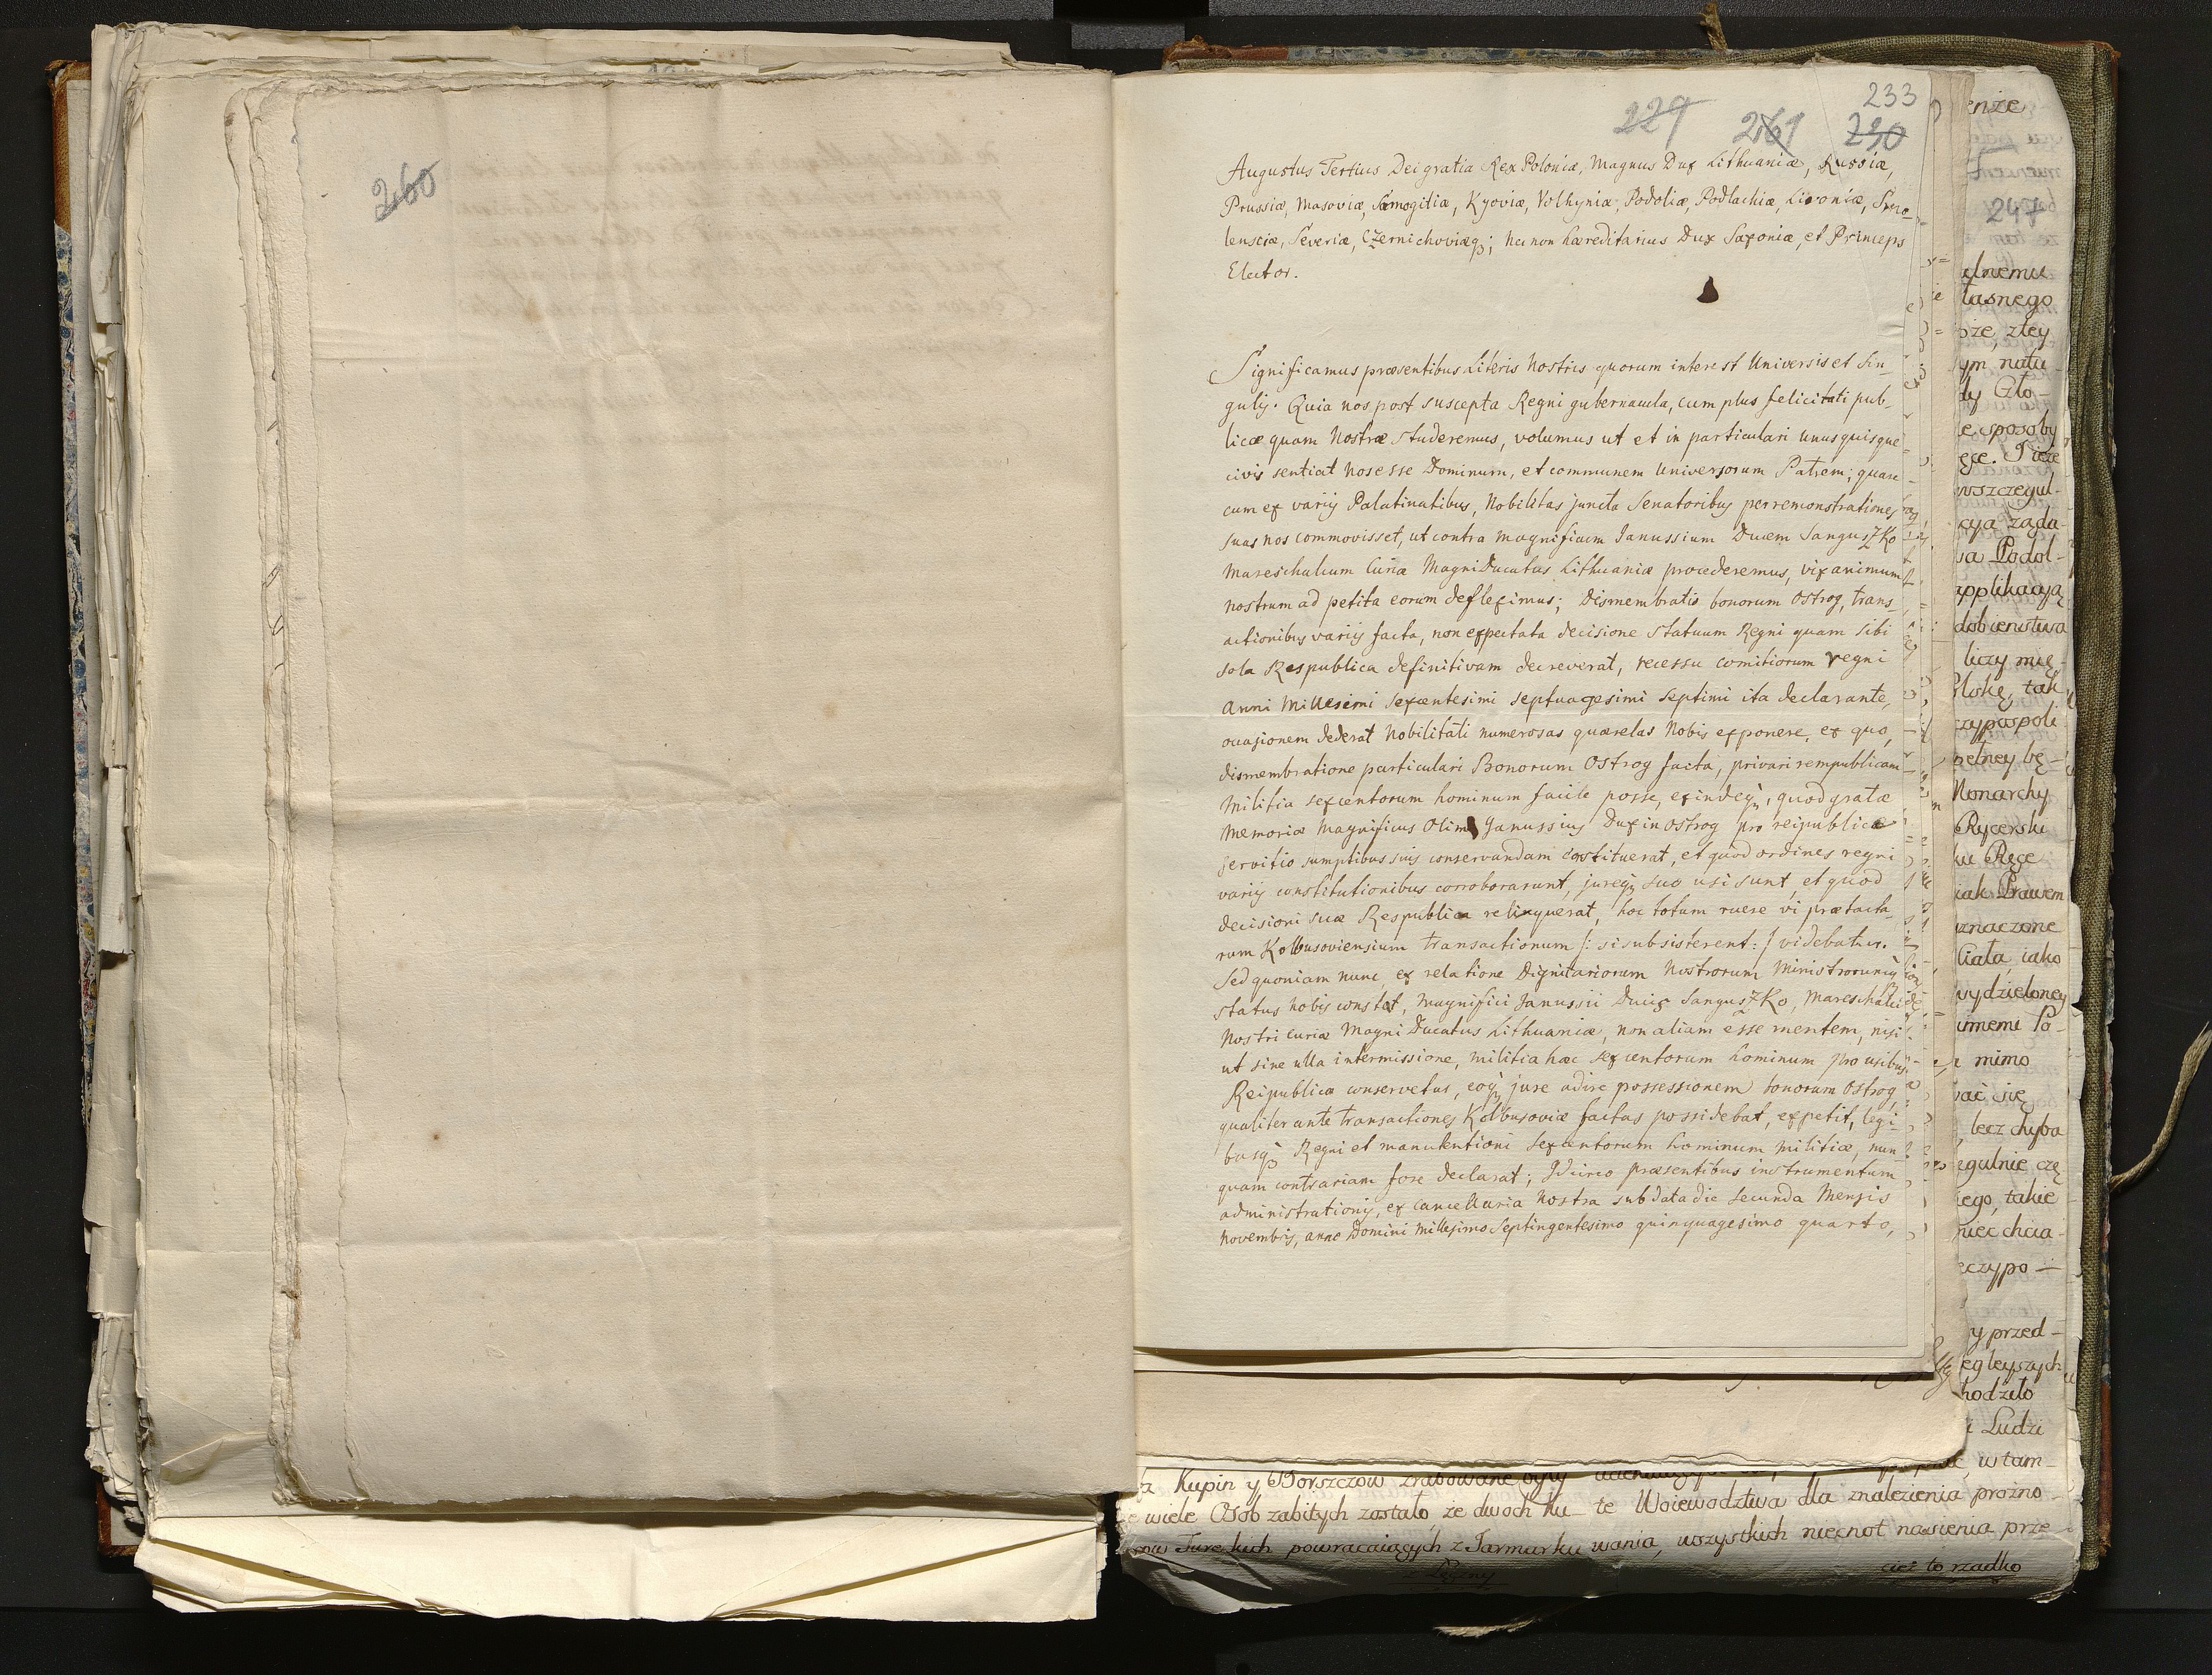 260
233
229 261 230
Augustus Tertius Dei gratia Rex Poloniæ, Magnus Dux Lithuaniæ, Russiæ,
Prussiæ, Masoviæ, Samogitiæ, Kyoviæ, Volhyniæ, Podoliæ, Podlachiæ, Livoniæ, Smo-
lensciæ, Severiæ, Czernichoviæq3; nec non hæreditarius Dux Saxoniæ, et Princeps
Elector.
Significamus præsentibus Literis Nostris quorum interest Universis et Sin-
gulis. Quia nos post suscepta Regni gubernacula, cum plus felicitati pub-
licæ quam Nostræ studeremus, volumus ut et in particulari unusquisque
civis sentiat nos esse Dominum, et communem Universorum Patrem; quare
cum ex varijs Palatinatibus, Nobilitas juncta Senatoribus per remonstrationes
suas nos commovisset, ut contra Magnificum Janussium Ducem Sanguszko
Mareschalcum Curiæ Magni Ducatus Lithuaniæ procederemus, vix animum
nostrum ad petita eorum defleximus; Dismembratio bonorum Ostrog, trans-
actionibus varijs facta, non expectata decisione Statuum Regni quam sibi
sola Respublica definitivam decreverat, recessu comitiorum regni
Anni Millesimi Sexcentesimi Septuagesimi Septimi ita declarante,
occasionem dederat Nobilitati numerosas quærelas Nobis exponere, ex quo,
dismembratione particulari Bonorum Ostrog facta, privari rempublicam
Militia sexcentorum hominum facile posse, exindeq3, quod gratæ
Memoriæ Magnificus Olim Janussius Dux in Ostrog pro reipublicæ
servitio sumptibus suis conservandam constituerat, et quod ordines regni
varijs constitutionibus corroborarunt, jureq3 suo usi sunt, et quod
decisioni suæ Respublica relinquerat, hoc totum ruere vi prætacta-
rum Kolbusoviensium transactionum /: si subsisterent: / videbatur.
Sed quoniam nunc, ex relatione Dignitariorum Nostrorum Ministrorumq3
status nobis constat, Magnifici Janussii Ducis Sanguszko, Mareschalci
Nostri Curiæ Magni Ducatus Lithuaniæ, non aliam esse mentem, nisi
ut sine ulla intermissione, militia hæc sexcentorum hominum pro usibus
Reipublicæ conservetur, eoq3 jure adire possessionem bonorum Ostrog,
qualiter ante transactiones Kolbusoviæ factas possidebat, expetit, legi-
busq3 Regni et manutentioni sexcentorum hominum militiæ, nun-
quam contrariam fore declarat; Idcirco præsentibus instrumentum
administrationis, ex cancellaria Nostra sub data die secunda Mensis
Novembris, anno Domini Millesimo Septingentesimo quinquagesimo quarto,
247
lasnego
zley
sposoby
Podol-
liczy mię-
tak
Monarchy
Ręce
iak Prawem
Ciała, iako
mimo
lecz chyba
takie
y przed-
Ludzi
w tam-
Kupin y Borszczow zrabowane były
wiele Osob zabitych zostało ze dwoch Ku- te Woiewodztwa dla znalezienia prozno-
Tureckich powracaiących z Jarmarku wania, wszystkich niecnot nasienia prze
z Łęczny
cież to rzadko